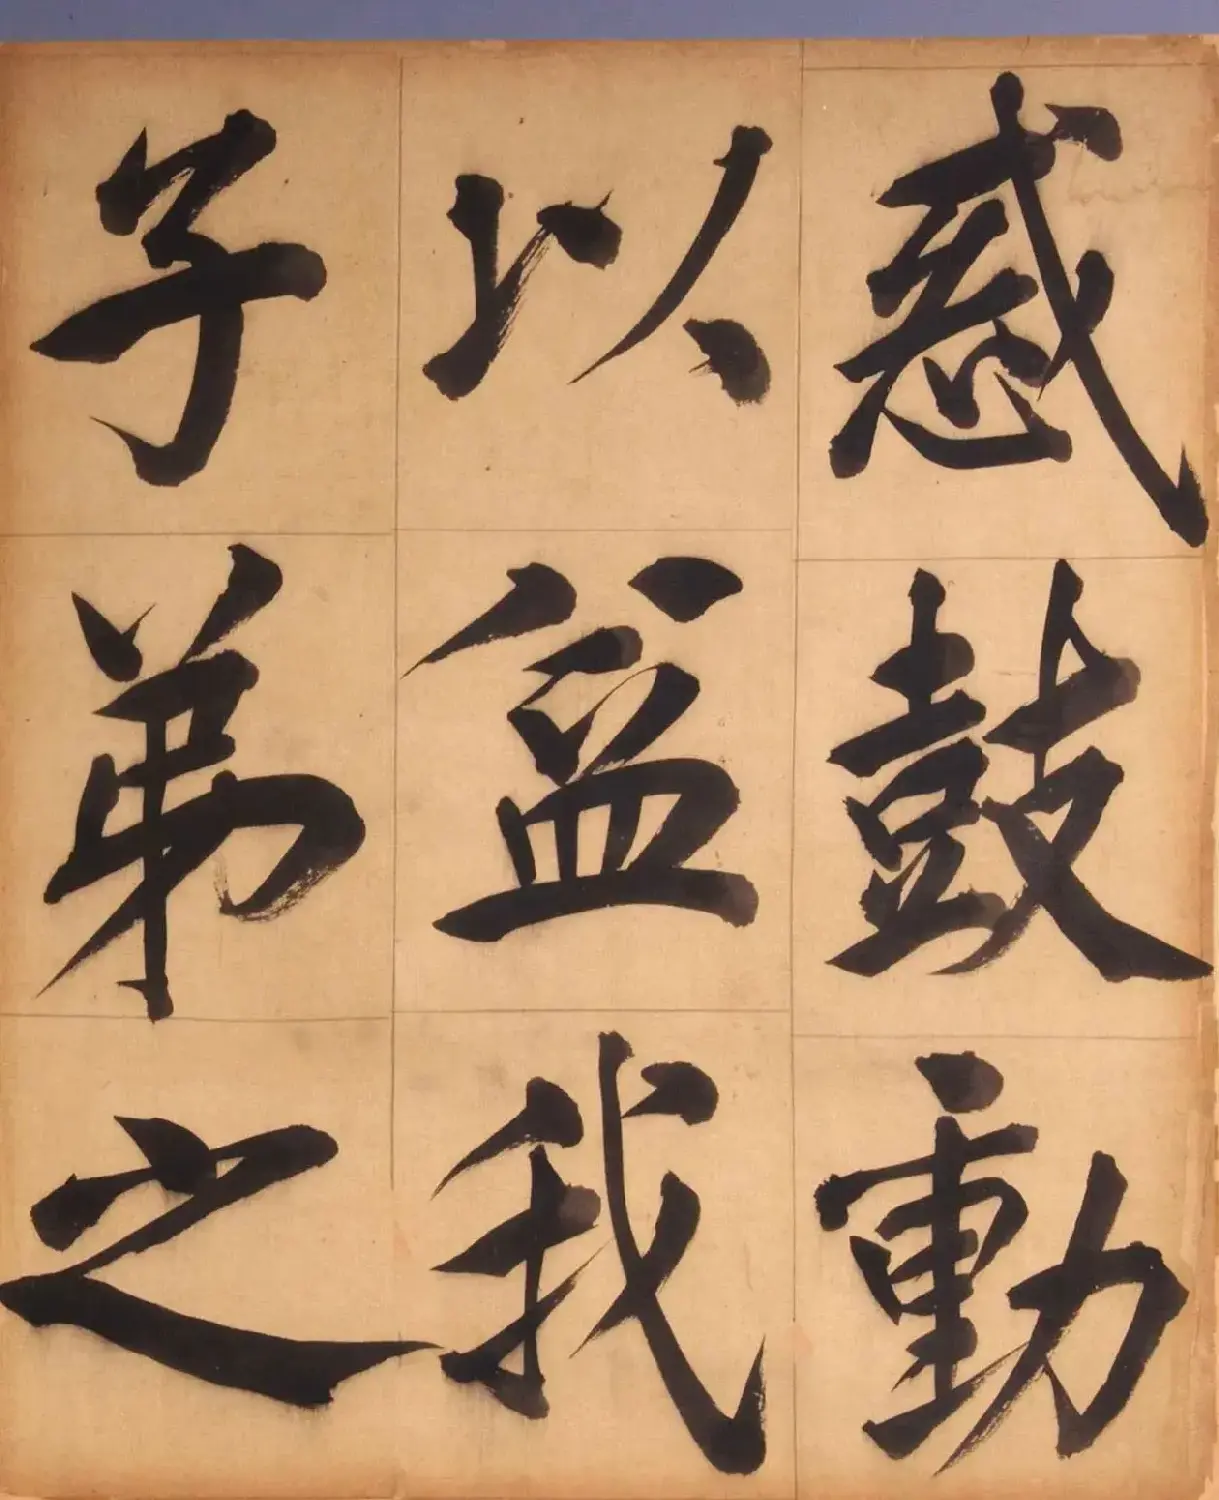 惑鼓動
以益我
子弟之